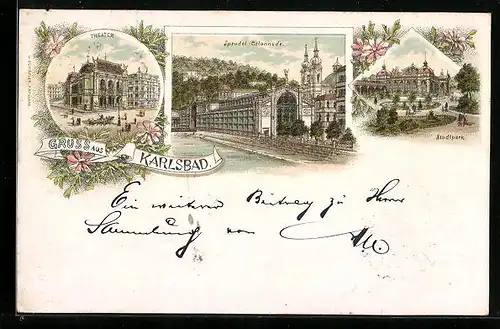 THEATER.
Sprudel-Colonnade.
Stadtpark.
GRUSS AUS
KARLSBAD.
Ein weiterer Beitrag zu Ihrer
Sammlung von